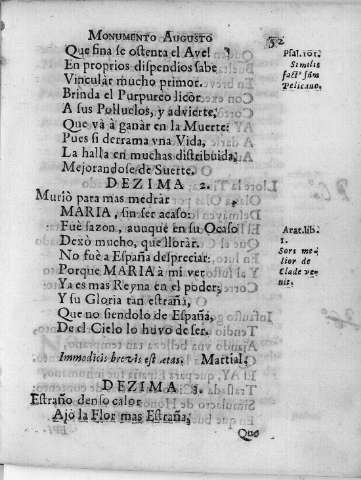 MONUMENTO AUGUSTO
52
Que fina se ostenta el Ave!
En proprios dispendios sabe
Vinculàr mucho primor.
Brinda el Purpureo licòr
A sus Polluelos, y advierte,
Que và à ganàr en la Muerte:
Pues si derrama vna Vida,
La halla en muchas distribuida,
Mejorandose de Suerte.
Psal. 101.
Similis
fact. sum
Pelicano.
DEZIMA 2.
Muriò para mas medrar
MARIA, sin ser acaso:
Fuè sazon, aunque en su Ocaso
Dexò mucho, que lloràr.
No fuè a España despreciar:
Porque MARIA à mi ver
Ya es mas Reyna en el poder;
Y su Gloria tan estraña,
Que no siendolo de España,
De el Cielo lo huvo de ser.
Arat. lib.
1.
Sors me-
lior de
Clade ve-
nit.
Immodicis brevis est ætas. Martial.
DEZIMA 3.
Estraño denso calor
Ajò la Flor mas Estraña,
Que